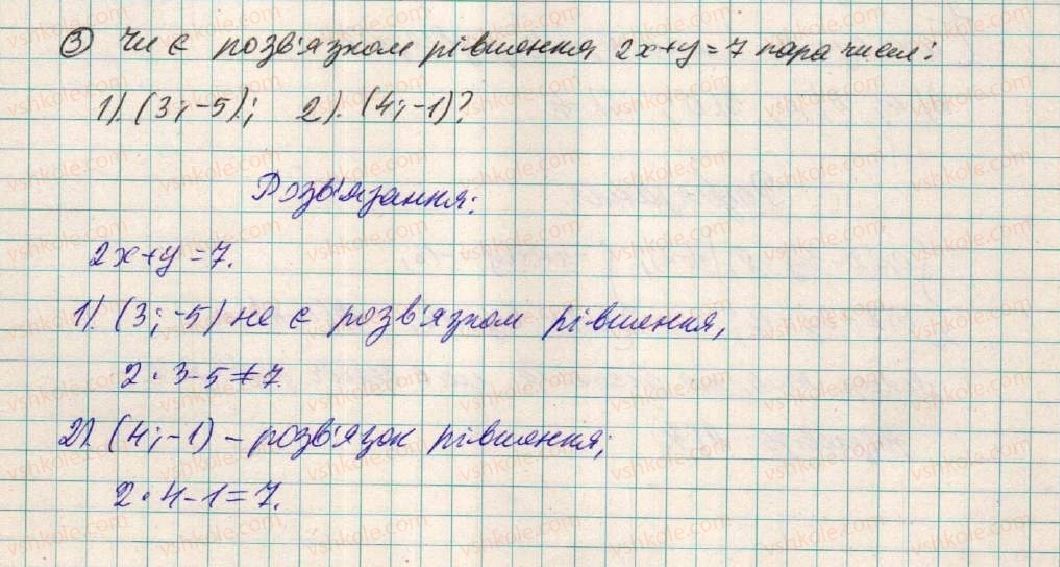 3 Чи є розв'язком рівняння 2x+y=7 пара чисел:
1). (3;-5); 2). (4;-1)?
Розв'язання:
2x+y=7.
1). (3;-5) не є розв'язком рівняння,
2·3-5≠7.
2). (4;-1) – розв'язок рівняння;
2·4-1=7.